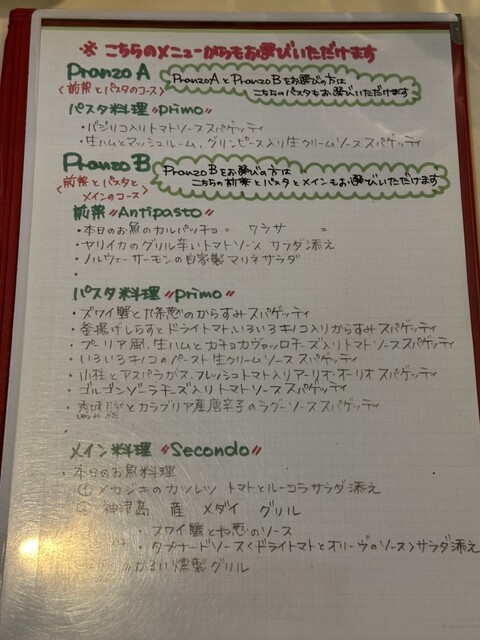 ※ こちらのメニューからもお選びいただけます
Pranzo A
<前菜とパスタのコース>
Pranzo A と Pranzo B をお選びの方は
こちらのパスタもお選びいただけます
パスタ料理 "primo"
・バジリコ入りトマトソース スパゲッティ
・生ハムとマッシュルーム、グリンピース入り生クリームソース スパゲッティ
Pranzo B
<前菜とパスタと
メインのコース>
Pranzo B をお選びの方は
こちらの前菜とパスタとメインもお選びいただけます
前菜 "Antipasto"
・本日のお魚のカルパッチョ = ワラサ =
・ヤリイカのグリル 辛いトマトソース サラダ添え
・ノルウェーサーモンの自家製マリネサラダ
・
パスタ料理 "primo"
・ズワイ蟹と九条葱のからすみスパゲッティ
・釜揚げしらすとドライトマト、いろいろキノコ入りからすみスパゲッティ
・プーリア風、生ハムとカチョカヴァッロチーズ入りトマトソーススパゲッティ
・いろいろキノコのペースト 生クリームソース スパゲッティ
・小柱とアスパラガス、フレッシュトマト入りアーリオ・オーリオ スパゲッティ
・ゴルゴンゾーラチーズ入りトマトソース スパゲッティ
・とカラブリア産唐辛子のラグーソース スパゲッティ
・
メイン料理 "Secondo"
・本日のお魚料理
① メカジキのカツレツ トマトとルーコラサラダ添え
② 神津島 産 メダイ グリル
・ズワイ蟹と九条葱のソース
・タプナードソース<ドライトマトとオリーヴのソース>サラダ添え
かるい燻製グリル